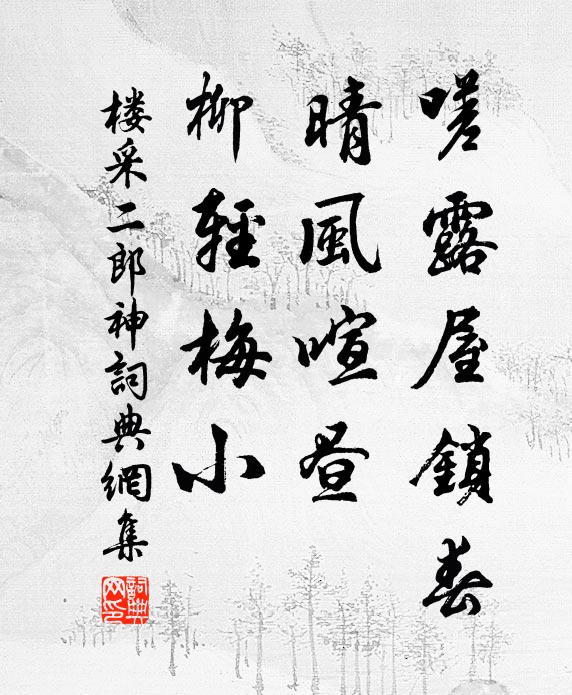 嗟露屋鎖春
晴風喧昼
柳輕梅小
楼采二郎神詞典網集
詞典